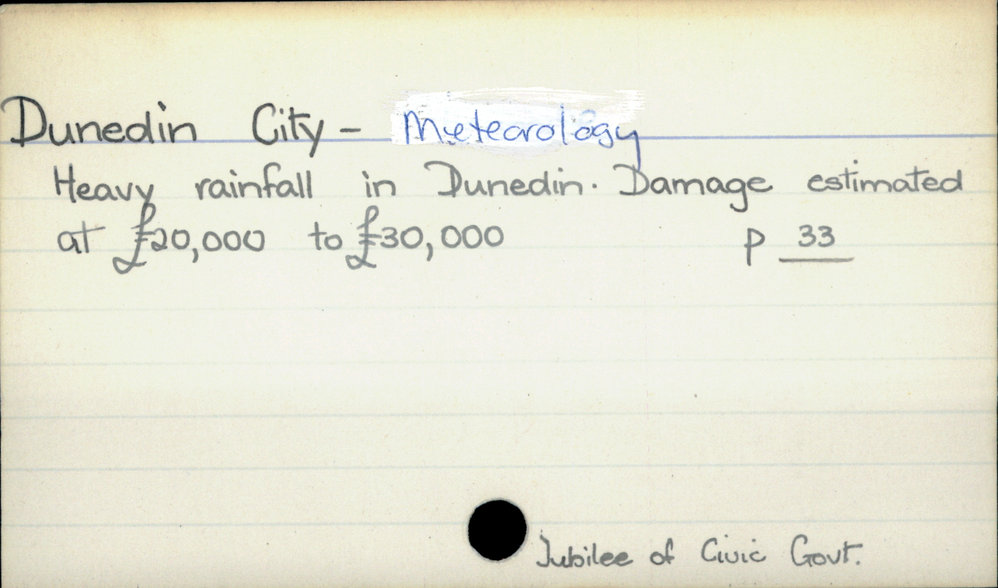 Dunedin City - Meteorology
Heavy rainfall in Dunedin. Damage estimated
at £20,000 to £30,000 p 33
Jubilee of Civic Govt.